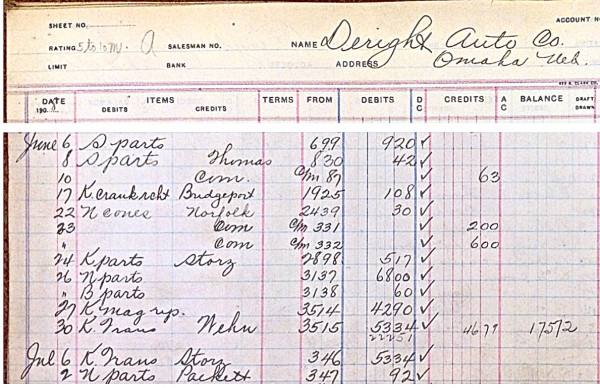 SHEET NO. ACCOUNT N
RATING 5 to 10 M. A SALESMAN NO. NAME Deright Auto Co.
LIMIT BANK ADDRESS Omaha Neb.
DATE ITEMS TERMS FROM DEBITS D C CREDITS A C BALANCE DRAFT DRAWN
190 DEBITS CREDITS
June 6 S parts 699 920 ✓
8 S parts Thomas 830 42 ✓
10 Com. C/m 87 ✓ 63
17 K. crank rcht Bridgeport 1925 108 ✓
22 N cones Norfolk 2439 30 ✓
23 Com C/m 331 ✓ 200
" Com C/m 332 ✓ 600
24 K parts Storz 2898 517 ✓
26 N parts 3137 6800 ✓
" B parts 3138 60 ✓
27 K mag rep. 3514 4290 ✓
30 K. Trans Wehn 3515 5334 ✓ 4679 17572
22251
Jul 6 K Trans Storz 346 5334 ✓
2 N parts Packett 347 92 ✓